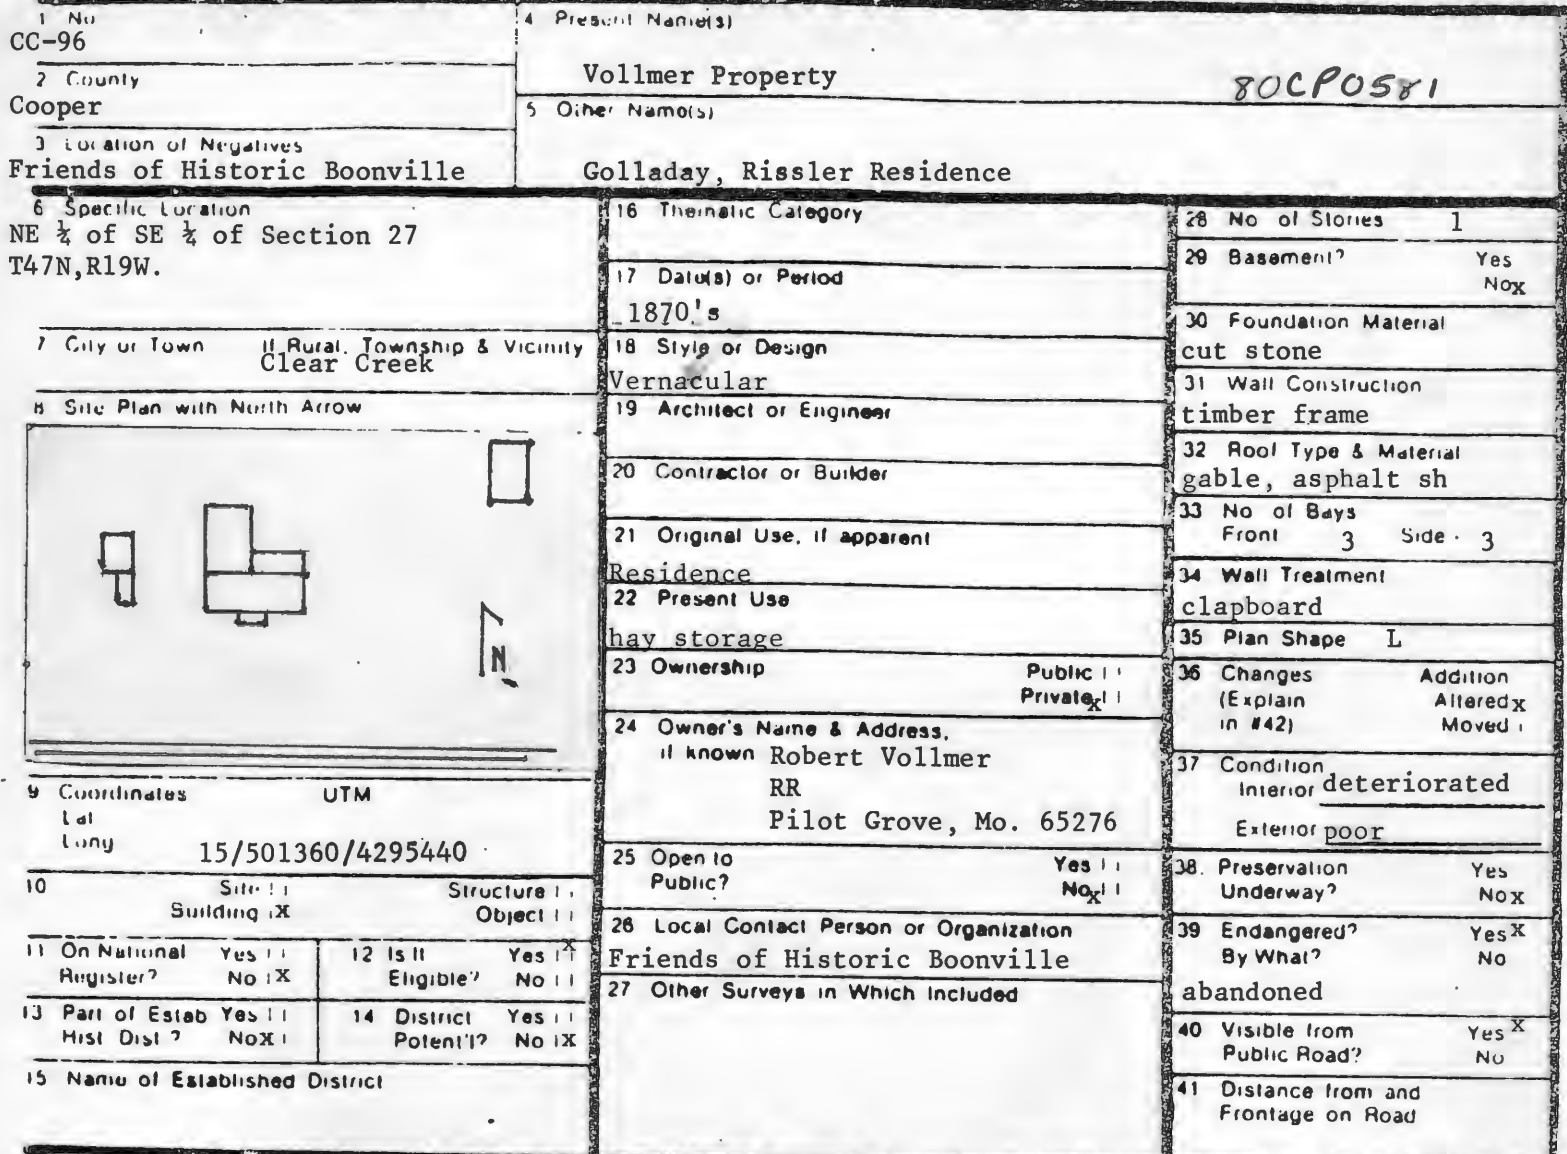 1 No
CC-96
2 County
Cooper
3 Location of Negatives
Friends of Historic Boonville
4 Present Name(s)
Vollmer Property
80CP0581
5 Other Name(s)
Golladay, Rissler Residence
6 Specific Location
NE ¼ of SE ¼ of Section 27
T47N,R19W.
7 City or Town If Rural, Township & Vicinity
Clear Creek
8 Site Plan with North Arrow
N
9 Coordinates UTM
Lat
Long
15/501360/4295440
10 Site Structure
Building X Object
11 On National Yes
Register? No X
12 Is It Yes X
Eligible? No
13 Part of Estab Yes
Hist Dist ? No X
14 District Yes
Potent'l? No X
15 Name of Established District
16 Thematic Category
17 Date(s) or Period
1870's
18 Style or Design
Vernacular
19 Architect or Engineer
20 Contractor or Builder
21 Original Use, if apparent
Residence
22 Present Use
hay storage
23 Ownership Public
Private x
24 Owner's Name & Address,
if known Robert Vollmer
RR
Pilot Grove, Mo. 65276
25 Open to Yes
Public? No x
26 Local Contact Person or Organization
Friends of Historic Boonville
27 Other Surveys in Which Included
28 No of Stories 1
29 Basement? Yes
No x
30 Foundation Material
cut stone
31 Wall Construction
timber frame
32 Roof Type & Material
gable, asphalt sh
33 No of Bays
Front 3 Side 3
34 Wall Treatment
clapboard
35 Plan Shape L
36 Changes Addition
(Explain Altered x
in #42) Moved
37 Condition
Interior deteriorated
Exterior poor
38. Preservation Yes
Underway? No x
39 Endangered? Yes X
By What? No
abandoned
40 Visible from Yes X
Public Road? No
41 Distance from and
Frontage on Road